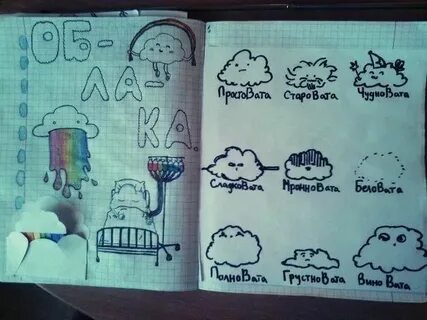 ОБ-
ЛА-
КА.
ПростоВата СтароВата ЧудноВата
СладкоВата МрачноВата БелоВата
ПолноВата ГрустноВата ВиноВата